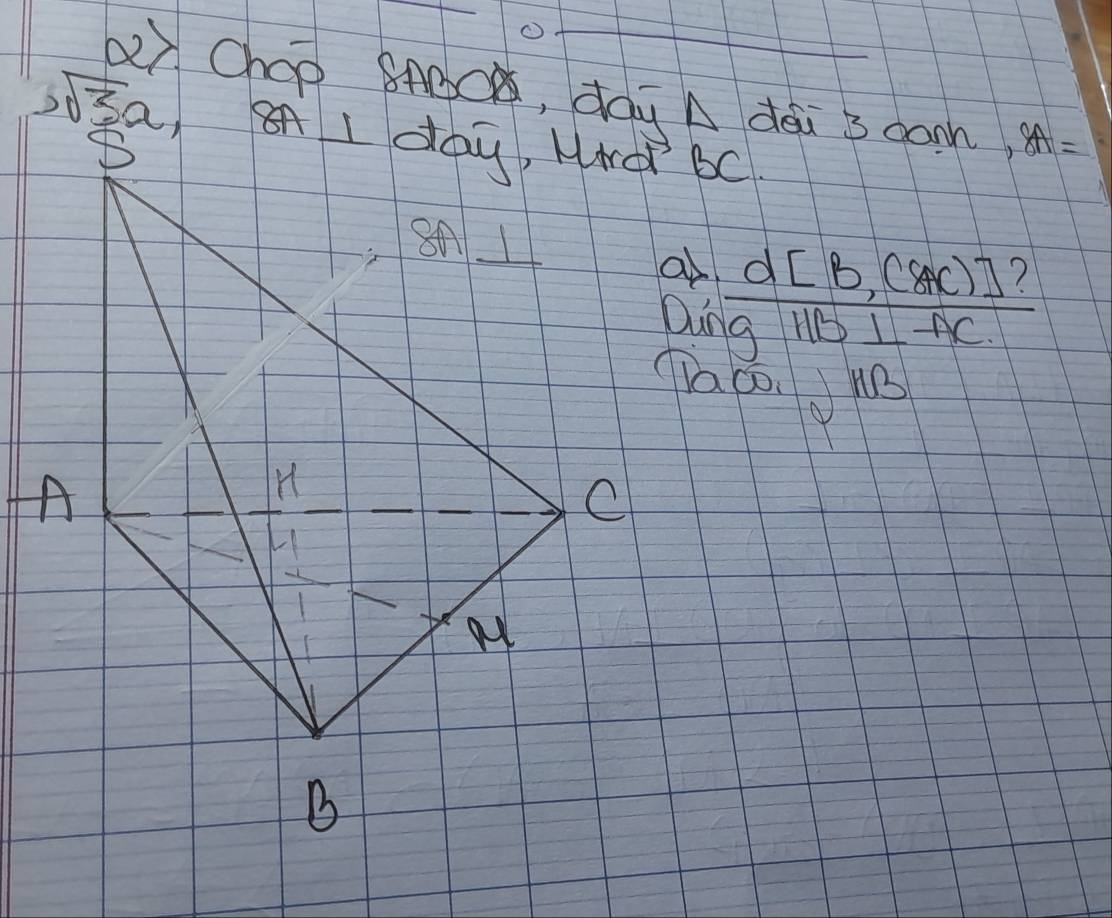 2> Chóp SABC, đáy Δ đều 3 cạnh, SA =
√3a, SA ⊥ đáy, M trđ BC.
S
SA ⊥
a>. d[B,(SAC)]?
Dựng HB ⊥ AC.
Ta có: HB
A
H
C
M
B